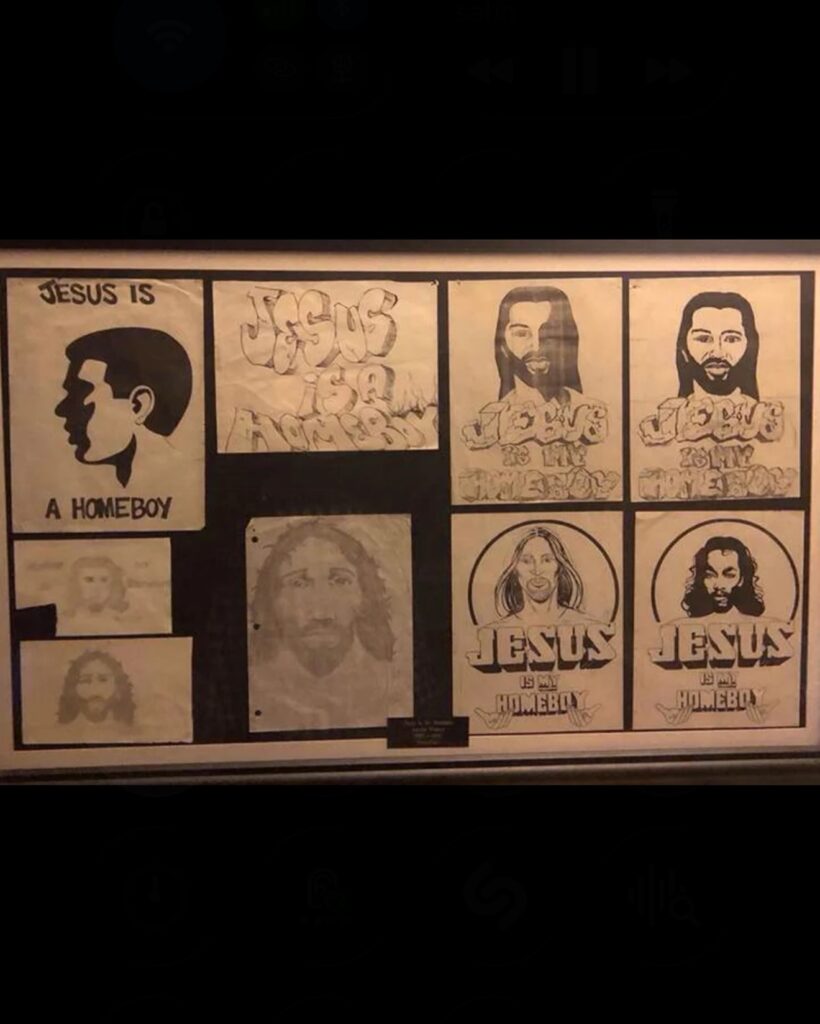 JESUS IS
A HOMEBOY
JESUS
IS A
HOMEBOY
JESUS
IS MY
HOMEBOY
JESUS
IS MY
HOMEBOY
JESUS
IS MY
HOMEBOY
JESUS
IS MY
HOMEBOY